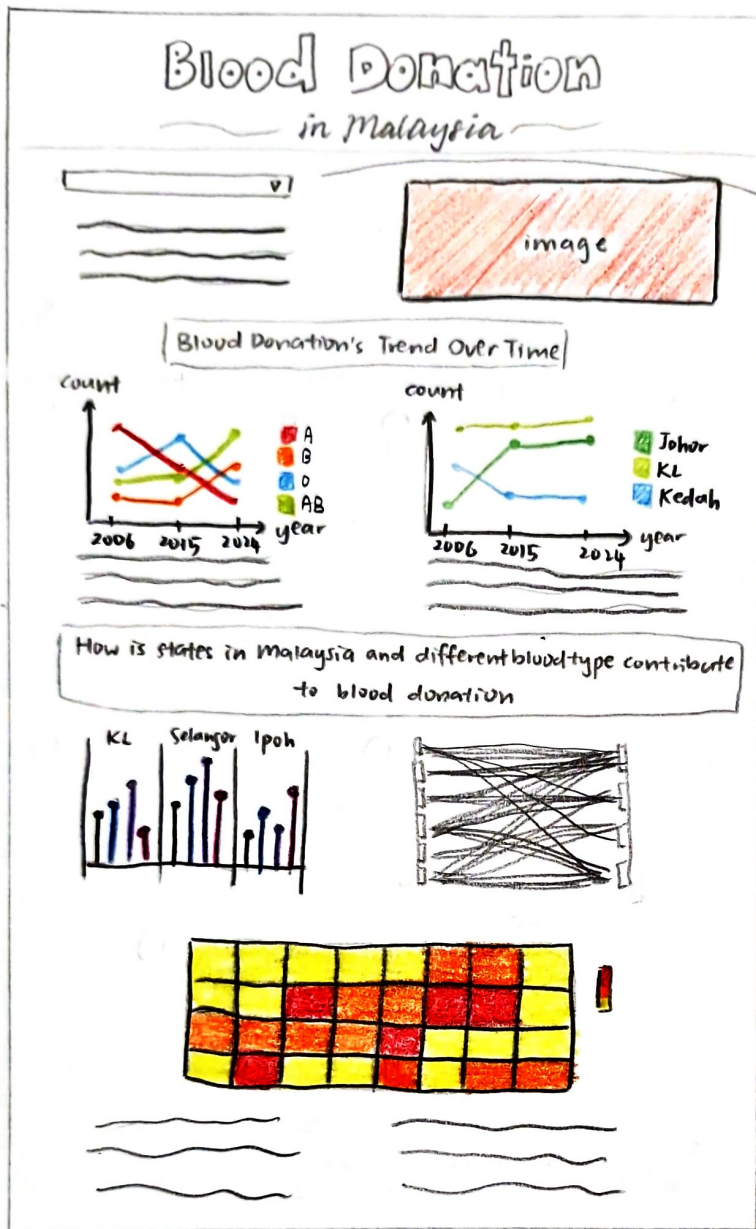 Blood Donation
in Malaysia
image
Blood Donation's Trend Over Time
count
A
B
O
AB
2006 2015 2024 year
count
Johor
KL
Kedah
2006 2015 2024 year
How is states in Malaysia and different bloodtype contribute
to blood donation
KL Selangor Ipoh